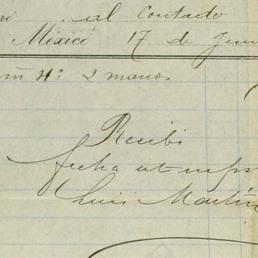 al Contado
México 17 de Jun
2 manos
Recibi
fecha ut supr
Luis Martín